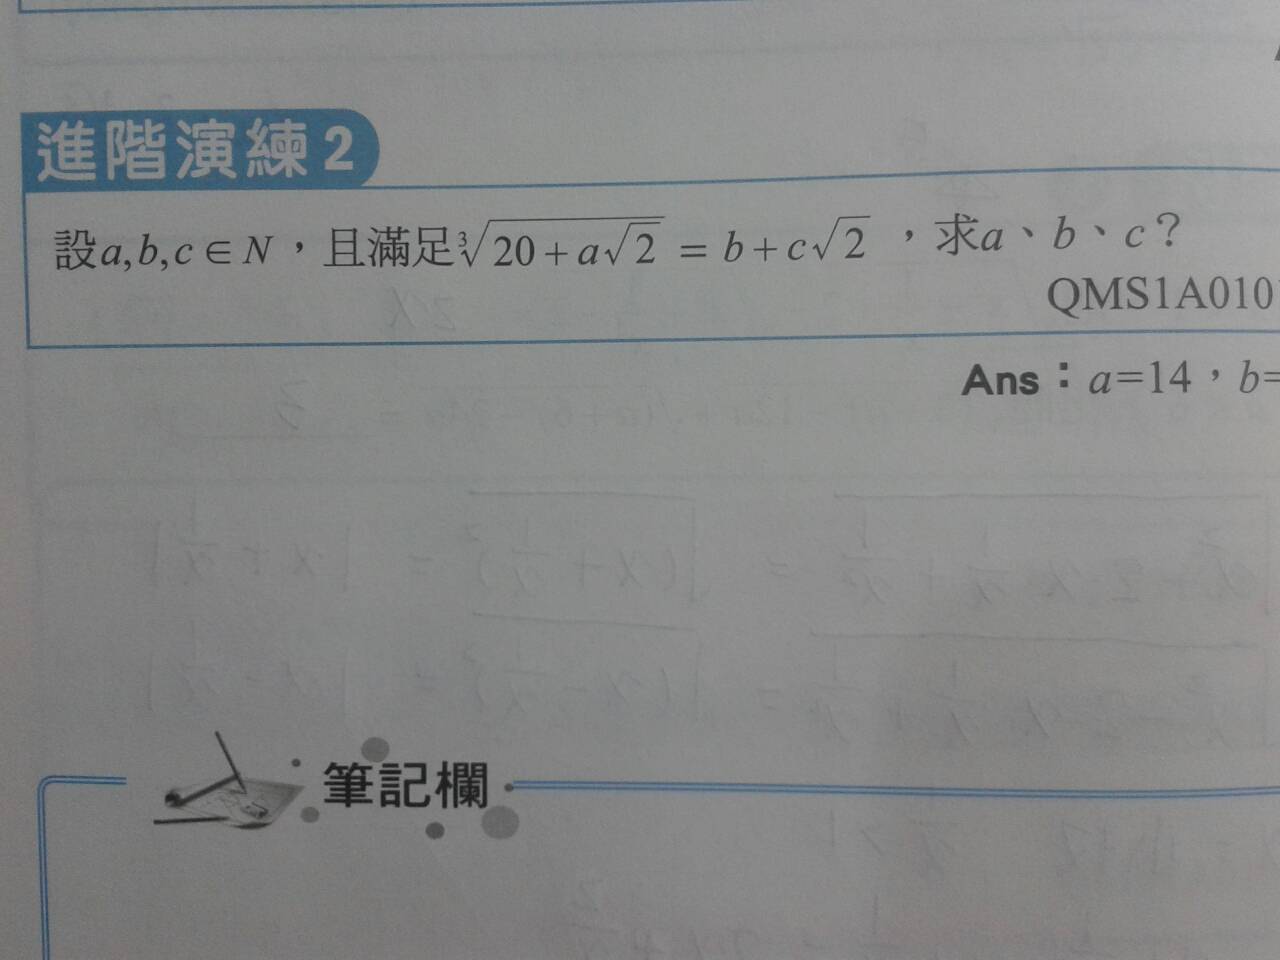 進階演練2
設a,b,c∈N，且滿足∛(20+a√2) = b+c√2，求a、b、c？
QMS1A010
Ans：a=14，b=
筆記欄